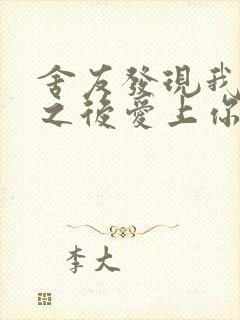 舍友發現我
之後愛上你
李大